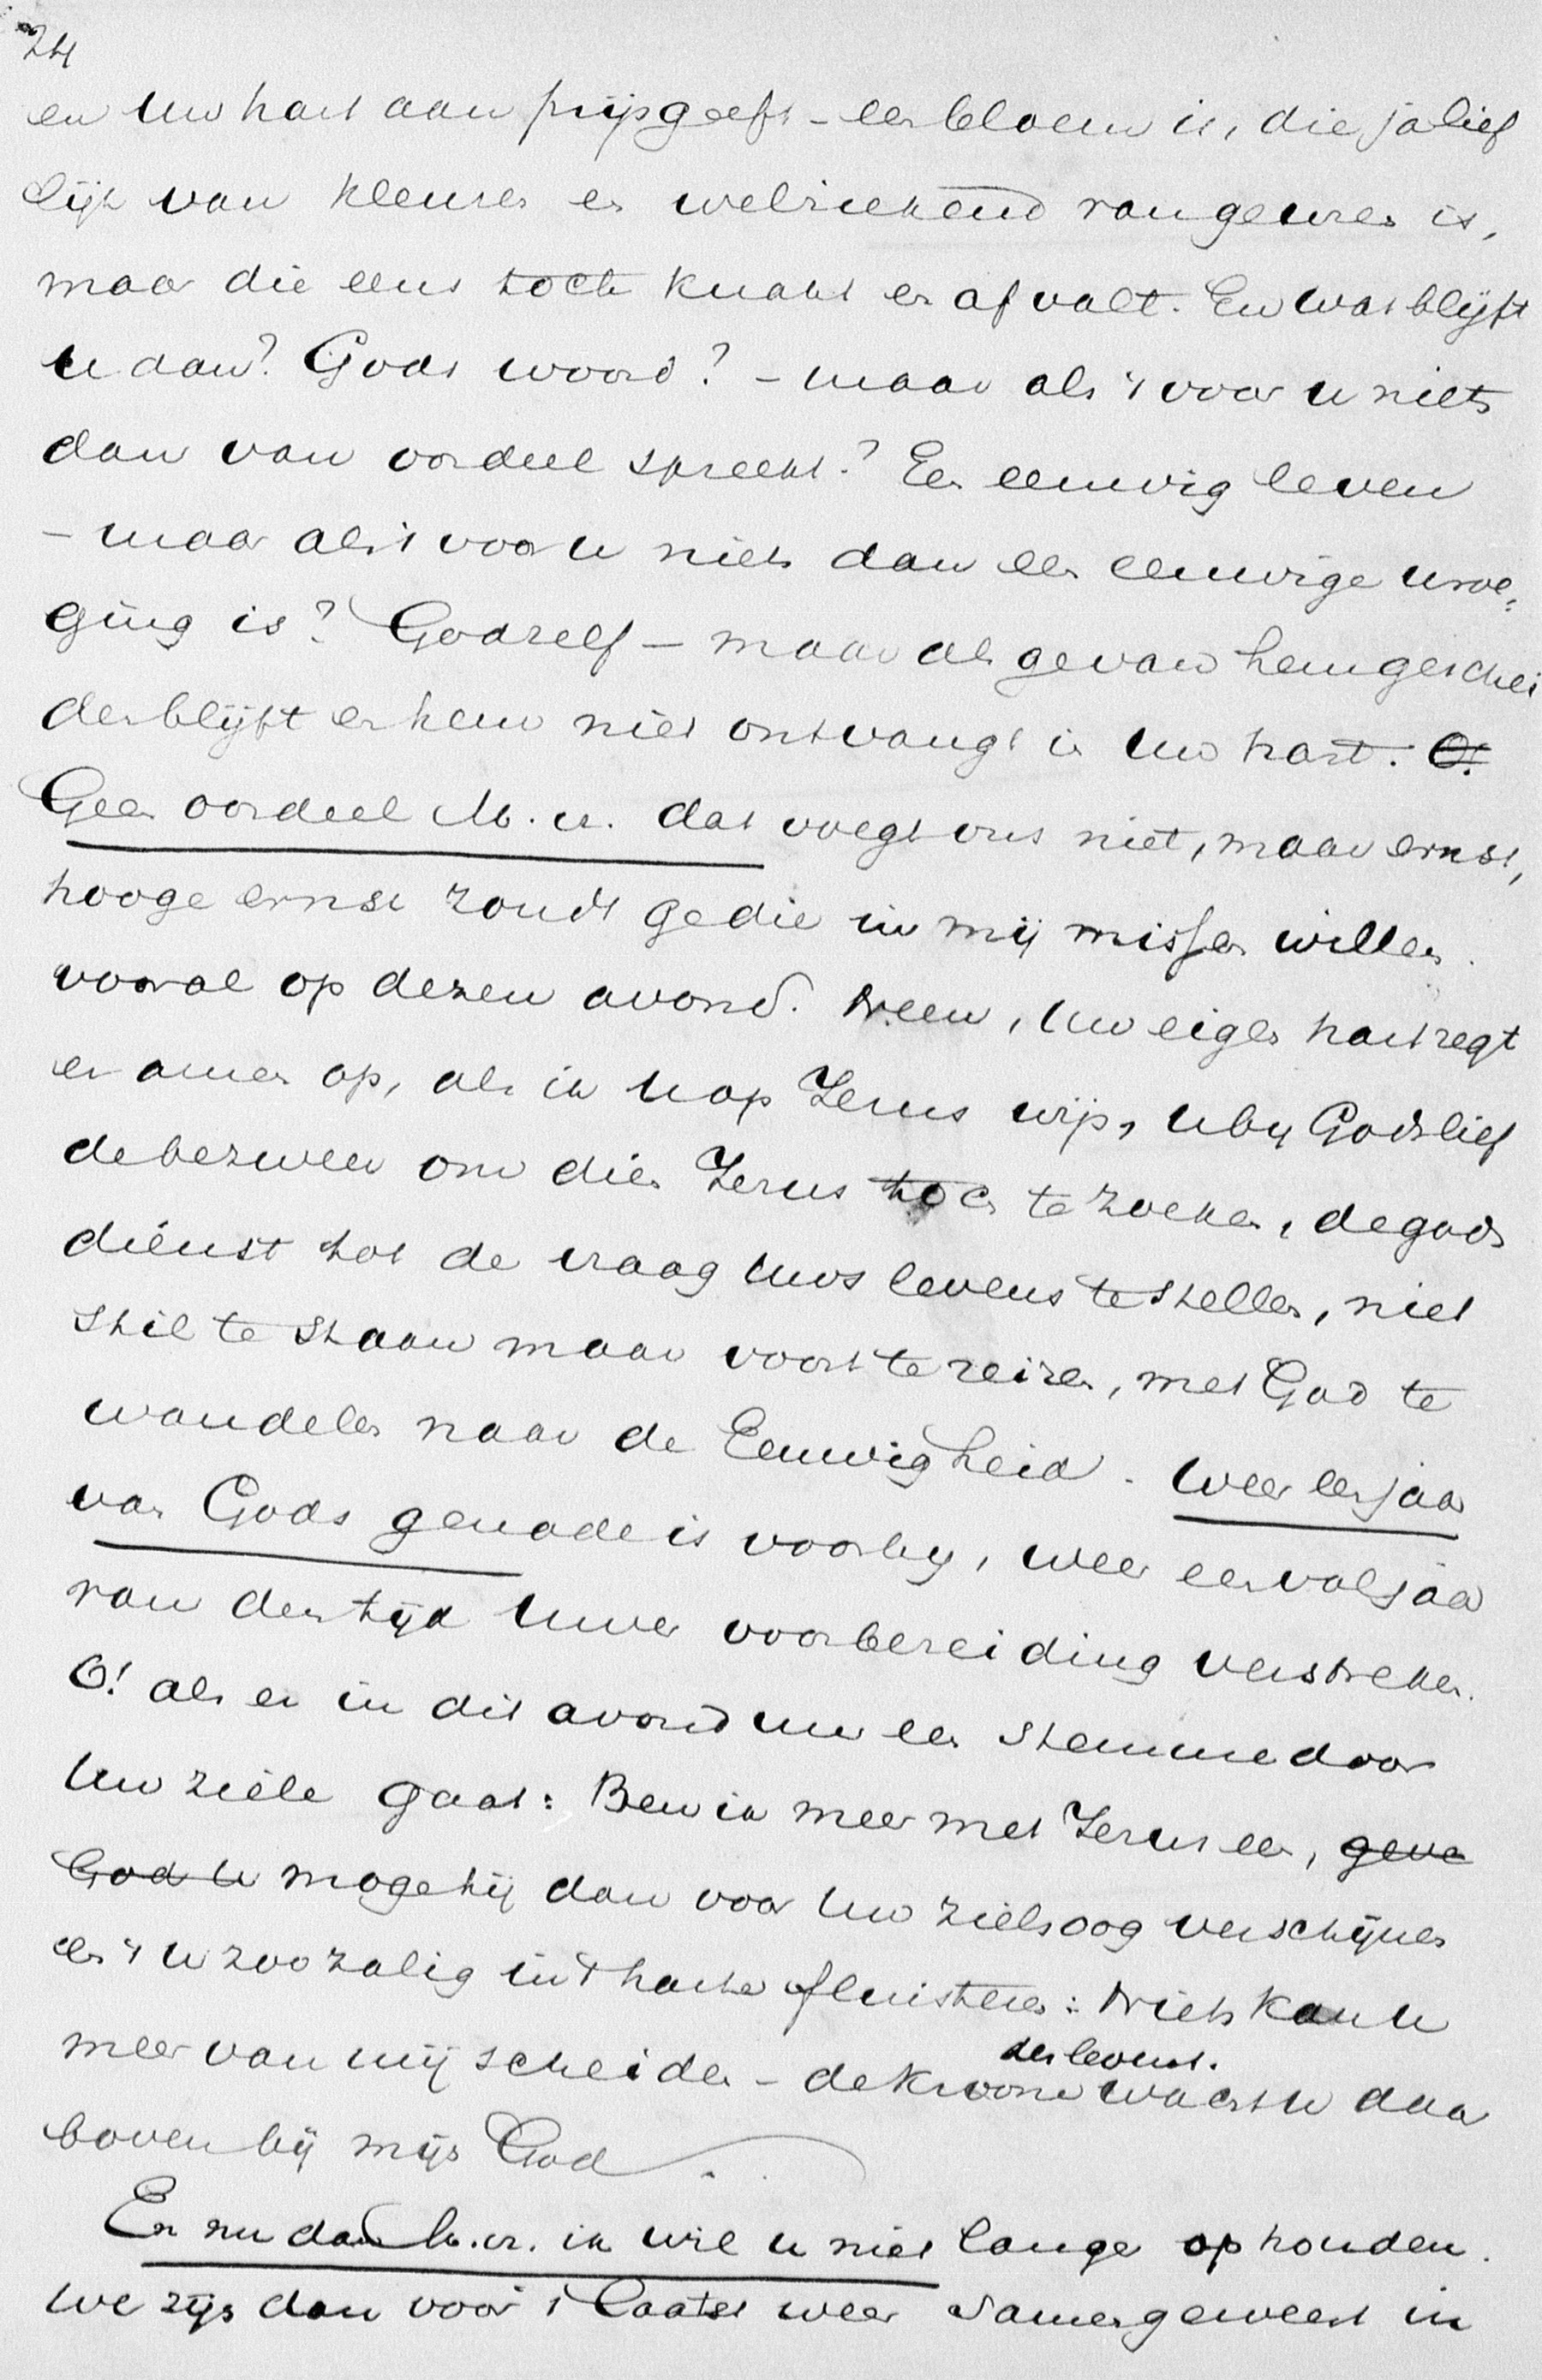 24
en Uw hart aan prijsgeeft - een bloem is, die ja lief
lijk van kleuren en welriekend van geuren is,
maar die eens toch knakt en afvalt. En wat blijft
U dan? Gods woord? - maar als 't voor U niets
dan van oordeel spreekt? Een eeuwig leven
- maar als 't voor U niets dan een eeuwige wroe,
ging is? God zelf - maar als ge van hem geschei
den blijft en hem niet ontvangt in Uw hart. O!
Geen oordeel M. v. dat voegt ons niet, maar ernst,
hooge ernst zoudt ge die in mij missen willen.
vooral op dezen avond. Neen, Uw eigen hart zegt
er amen op, als ik U op Jezus wijs, U bij Gods lief
de bezweer om dien Jezus toch te zoeken, de gods
dienst tot de vraag Uws levens te stellen, niet
stil te staan maar voort te reizen, met God te
wandelen naar de Eeuwigheid. Weer een jaar
van Gods genade is voorby, weer een vol jaar
van den tijd Uwer voorbereiding verstreken.
O! als er in dit avonduur een stemme door
Uw ziele gaat: Ben ik meer met Jezus een, geve
God U moge hij dan voor Uw zielsoog verschijnen
en 't U zoo zalig in 't harte fluisteren: Niets kan U
meer van mij scheiden - de kroone des levens. wacht U daar
boven bij mijn God.
En nu dan M. v. ik wil U niet langer ophouden.
We zijn dan voor 't laatst weer samengeweest in